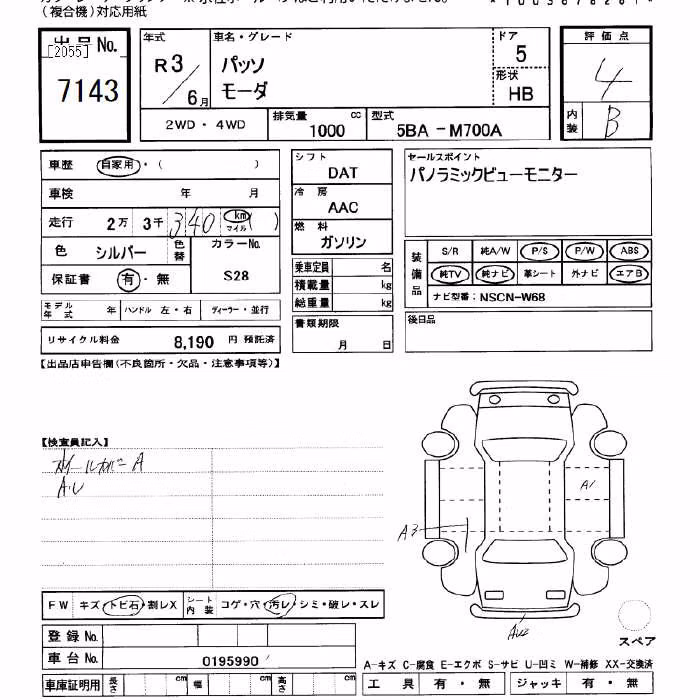 (複合機)対応用紙
出品No.
[2055]
7143
年式 R3/6月
車名・グレード
パッソ
モーダ
ドア 5
形状 HB
評価点 4
内装 B
2WD・4WD
排気量 1000 cc
型式 5BA -M700A
車歴 自家用・( )
車検 年 月
走行 2万 3千 340 km マイル ( )
色 シルバー 色替 カラーNo. S28
保証書 有・無
モデル年式 年 ハンドル 左・右 ディーラー・並行
リサイクル料金 8,190 円 預託済
シフト DAT
冷房 AAC
燃料 ガソリン
乗車定員 名
積載量 kg
総重量 kg
書類期限 月 日
セールスポイント
パノラミックビューモニター
装備品
S/R 純A/W P/S P/W ABS
純TV 純ナビ 革シート 外ナビ エアB
ナビ型番: NSCN-W68
後日品
【出品店申告欄(不良箇所・欠品・注意事項等)】
【検査員記入】
ホイールカバーA
A.U
A1
A3
AU2
スペア
FW キズ・トビ石・割レX シート内装 コゲ・穴・汚レ・シミ・破レ・スレ
登録No.
車台No. 0195990
車庫証明用 長さ cm 幅 cm 高さ cm
A-キズ C-腐食 E-エクボ S-サビ U-凹ミ W-補修 XX-交換済
工具 有・無 ジャッキ 有・無